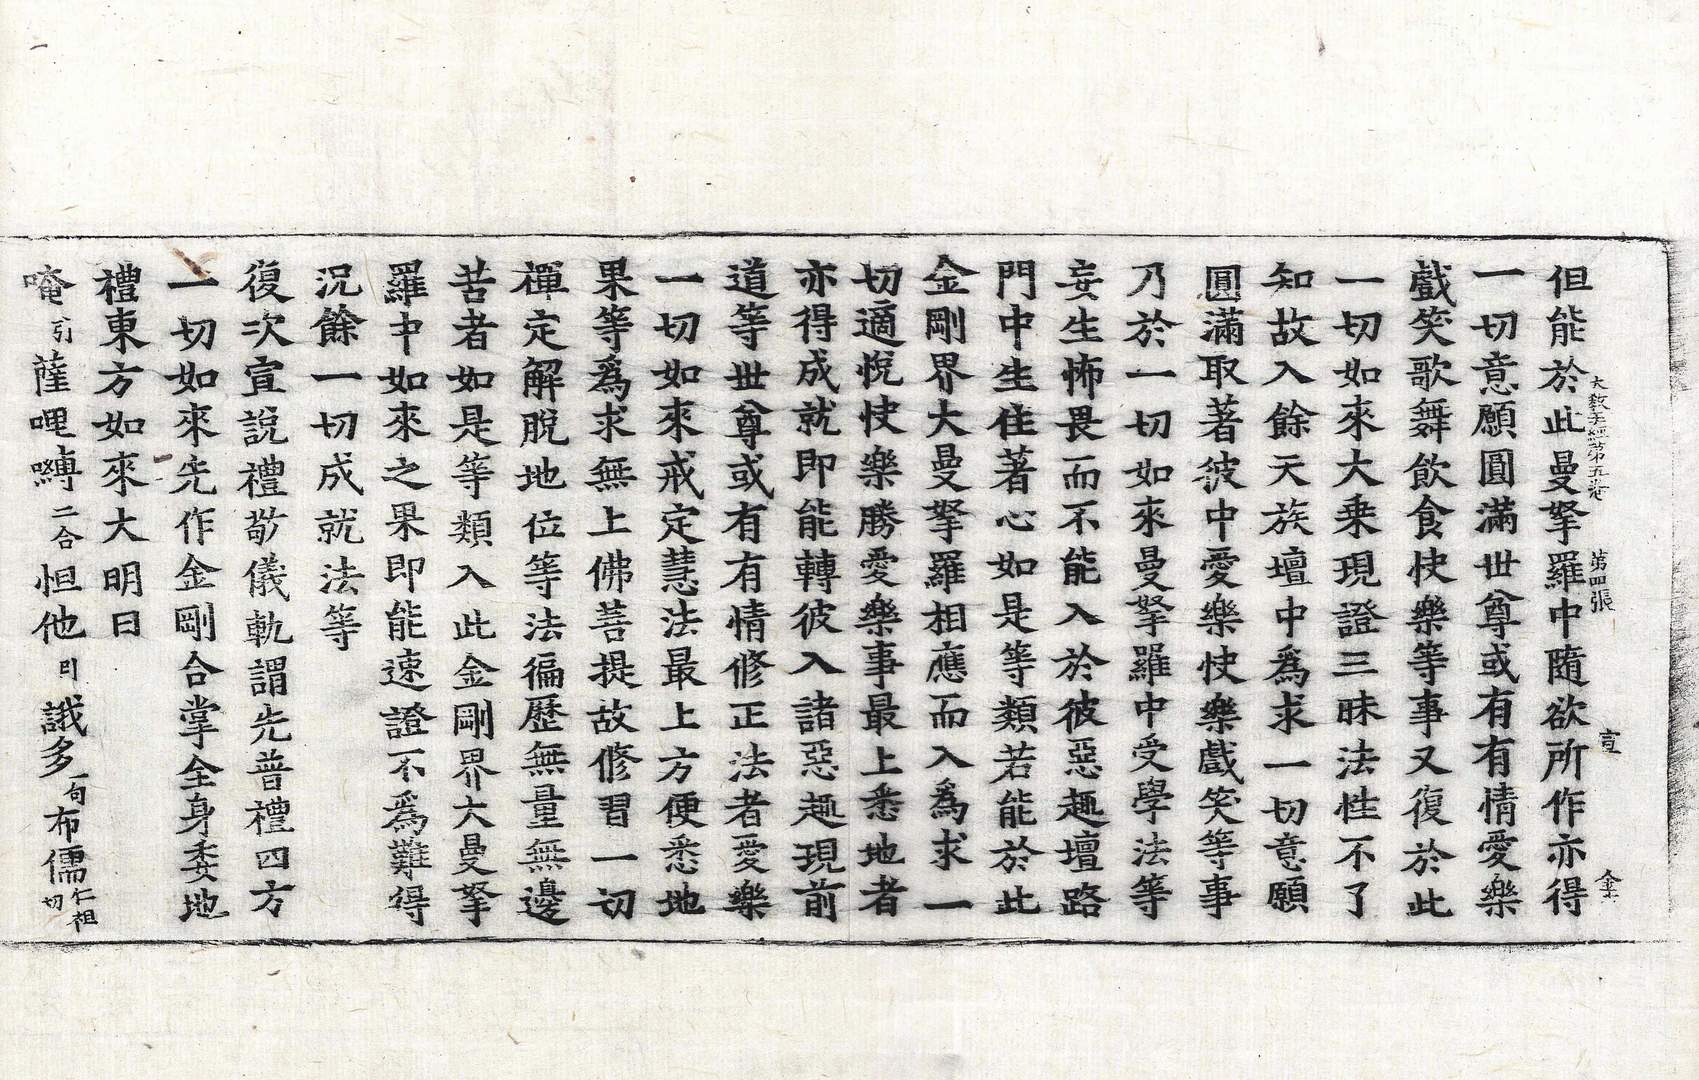 大教王經第五卷 第四張 宣
但能於此曼拏羅中隨欲所作亦得
一切意願圓滿世尊或有有情愛樂
戲笑歌舞飲食快樂等事又復於此
一切如來大乘現證三昧法性不了
知故入餘天族壇中爲求一切意願
圓滿取著彼中愛樂快樂戲笑等事
乃於一切如來曼拏羅中受學法等
妄生怖畏而不能入於彼惡趣壇路
門中生住著心如是等類若能於此
金剛界大曼拏羅相應而入爲求一
切適悅快樂勝愛樂事最上悉地者
亦得成就即能轉彼入諸惡趣現前
道等世尊或有有情修正法者愛樂
一切如來戒定慧法最上方便悉地
果等爲求無上佛菩提故修習一切
禪定解脫地位等法徧歷無量無邊
苦者如是等類入此金剛界大曼拏
羅中如來之果即能速證不爲難得
況餘一切成就法等
復次宣說禮敬儀軌謂先普禮四方
一切如來先作金剛合掌全身委地
禮東方如來大明曰
唵引薩哩嚩二合怛他引誐多一句布儒仁祖切